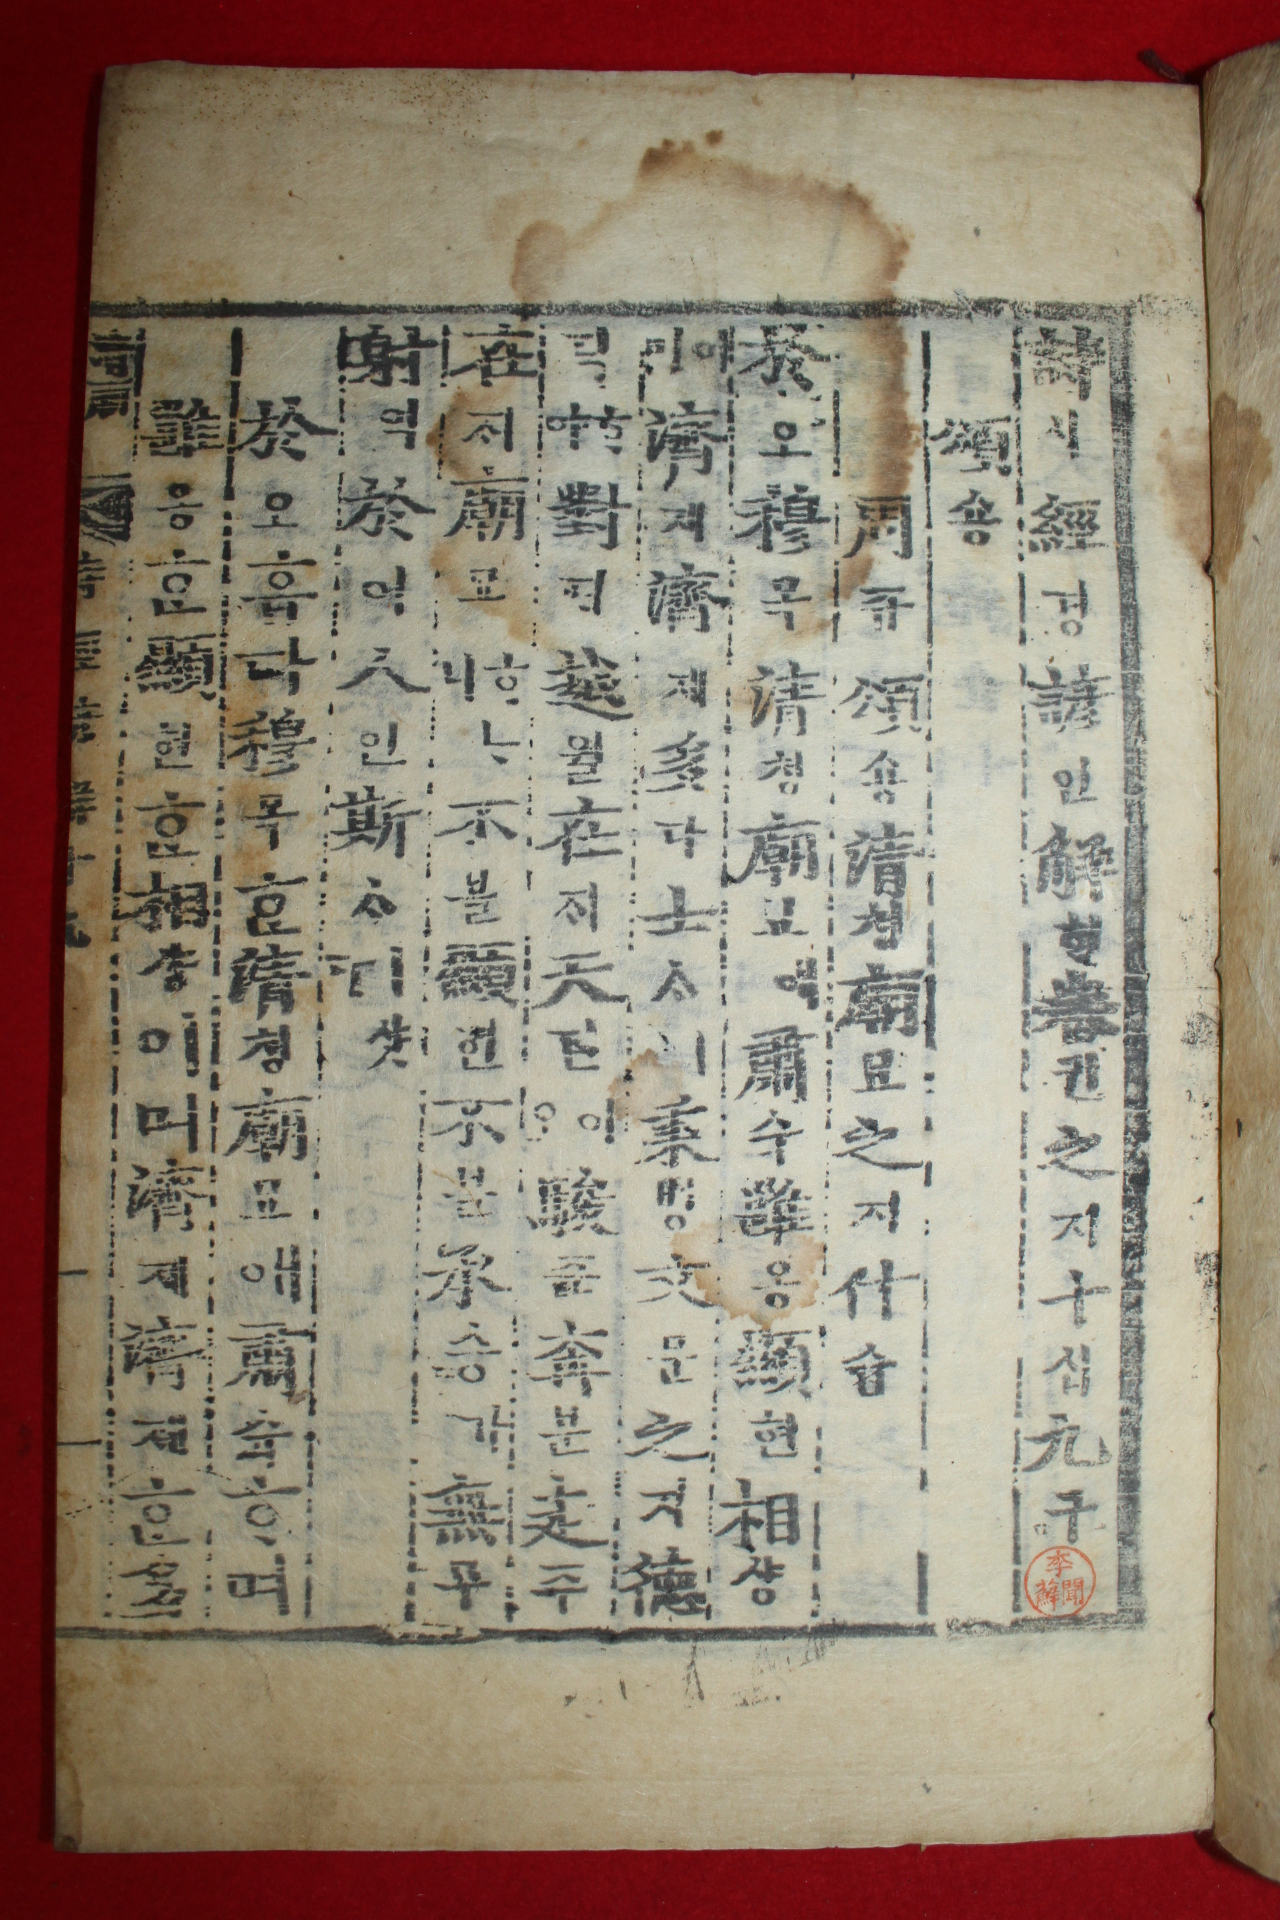 詩시經경諺언解ᄒᆡ卷권之지十십九구
李聞薜
頌숑
周쥬頌숑淸쳥廟묘之지什습
於오穆목淸쳥廟묘애肅슉雝옹顯현相샹
이며濟졔濟졔多다士ᄉᆞㅣ秉병文문之지德
덕ᄒᆞ야對ᄃᆡ越월在ᄌᆡ天텬이오駿쥰奔분走주
在ᄌᆡ廟묘ᄒᆞᄂᆞ니不블顯현不블承승가無무
射역於어人인斯ᄉᆞㅣ샷다
於오흡다穆목ᄒᆞᆫ淸쳥廟묘애肅슉ᄒᆞ며
雝옹ᄒᆞᆫ顯현ᄒᆞᆫ相샹이며濟졔濟졔ᄒᆞᆫ